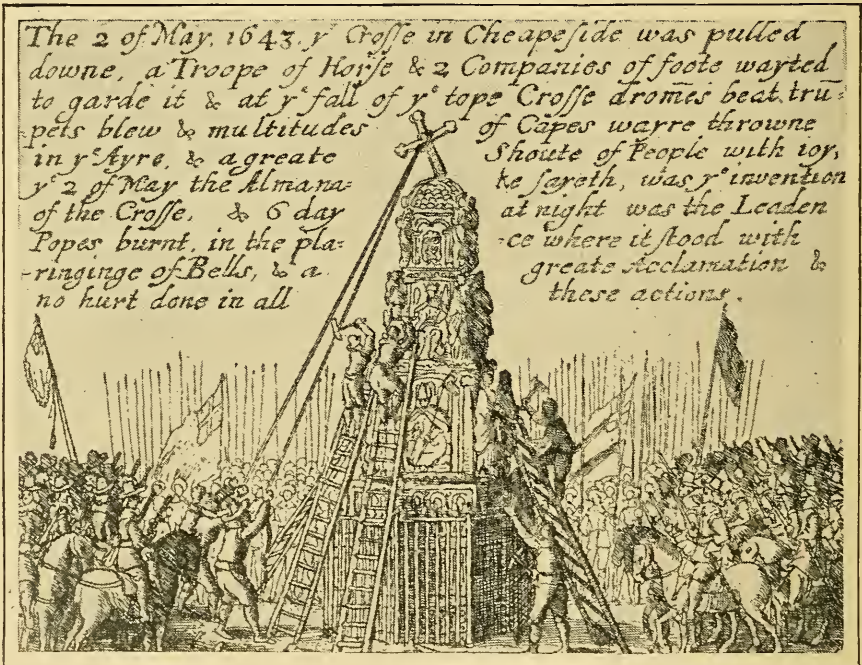 The 2 of May. 1643. yͤ Crosse in Cheapeside was pulled
downe, a Troope of Horse & 2 Companies of foote wayted
to garde it & at yͤ fall of yͤ tope Crosse dromes beat tru=
=pets blew & multitudes of Capes warre throwne
in yͤ Ayre, & a greate Shoute of People with ioy,
yͤ 2 of May the Almana= ke sayeth, was yͤ invention
of the Crosse, & 6 day at night was the Leaden
Popes burnt, in the pla= =ce where it stood with
=ringinge of Bells, & a greate Acclamation &
no hurt done in all these actions.